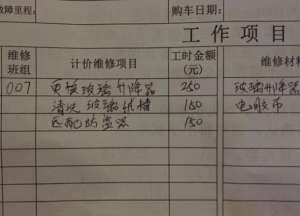 故障里程: 购车日期:
工作项目
维修班组 计价维修项目 工时金额(元) 维修材料
007 更换玻璃升降器 250 玻璃升降器
清洗玻璃泥槽 150 电胶布
匹配防盗器 150